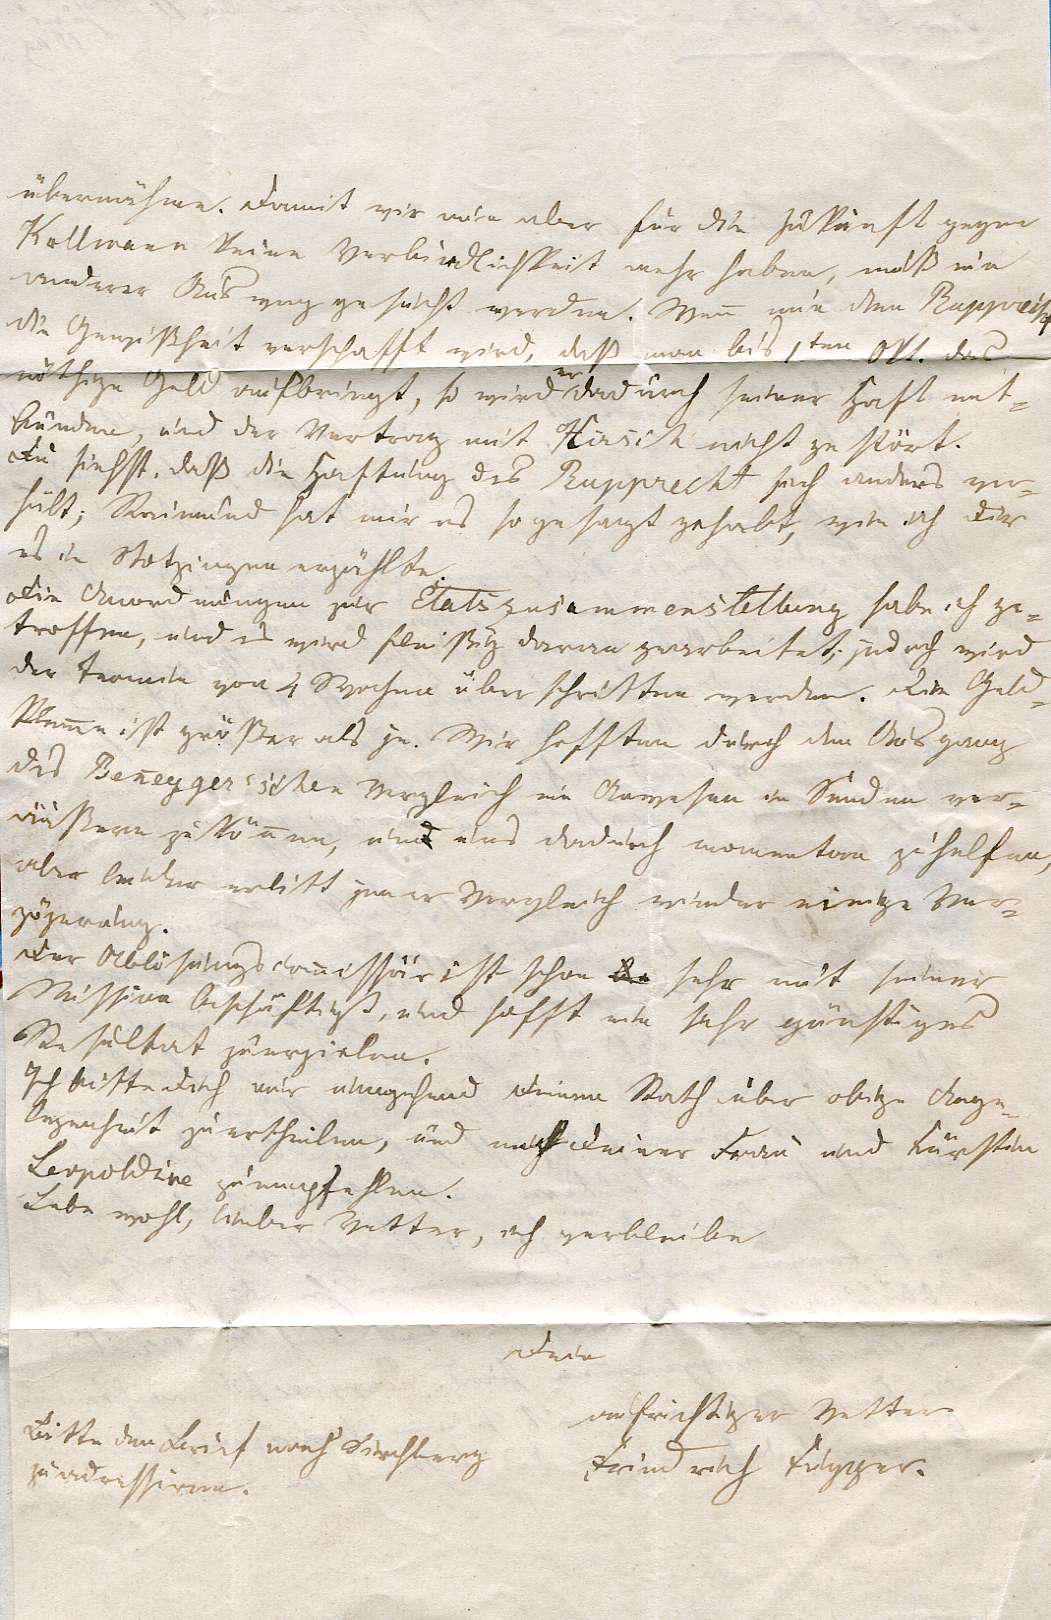 übernähme. Damit wir nun aber für die Zukunft gegen
Kollmann keine Verbindlichkeit mehr haben, muß ein
anderer Ausweg gesucht werden. Wenn nun dem Rupprecht
die Gewißheit verschafft wird, daß man bis 1ten Okt. das
nöthige Geld aufbringt, so wird er dadurch seiner Haft ent-
bunden, und der Vertrag mit Hirsch nicht zerstört.
Du siehst, daß die Haftung des Rupprecht sich anders ver-
hält; Raimund hat mir es so gesagt gehabt, wie ich Dir
es in Stotzingen erzählte.
Die Anordnungen zur Etatszusammenstellung habe ich ge-
troffen, und es wird fleißig daran gearbeitet; jedoch wird
der Termin von 4 Wochen überschritten werden. Die Geld-
klemme ist größer als je. Wir hofften durch den Ausgang
des Beneggerischen Vergleich ein Anwesen in Sünden ver-
äußern zu können, und uns dadurch momentan zu helfen,
aber leider erlitt jener Vergleich wieder einige Ver-
zögerung.
Der Ablösungscommissär ist schon sehr mit seiner
Mission beschäftigt, und hofft ein sehr günstiges
Resultat zu erzielen.
Ich bitte Dich mir umgehend Deinen Rath über obige Ange-
legenheit zu ertheilen, und mich Deiner Frau und Fürstin
Leopoldine zu empfehlen.
Lebe wohl, lieber Vetter, ich verbleibe
Dein
aufrichtiger Vetter
Friedrich Fugger.
Bitte den Brief nach Kirchberg
zu adressiren.